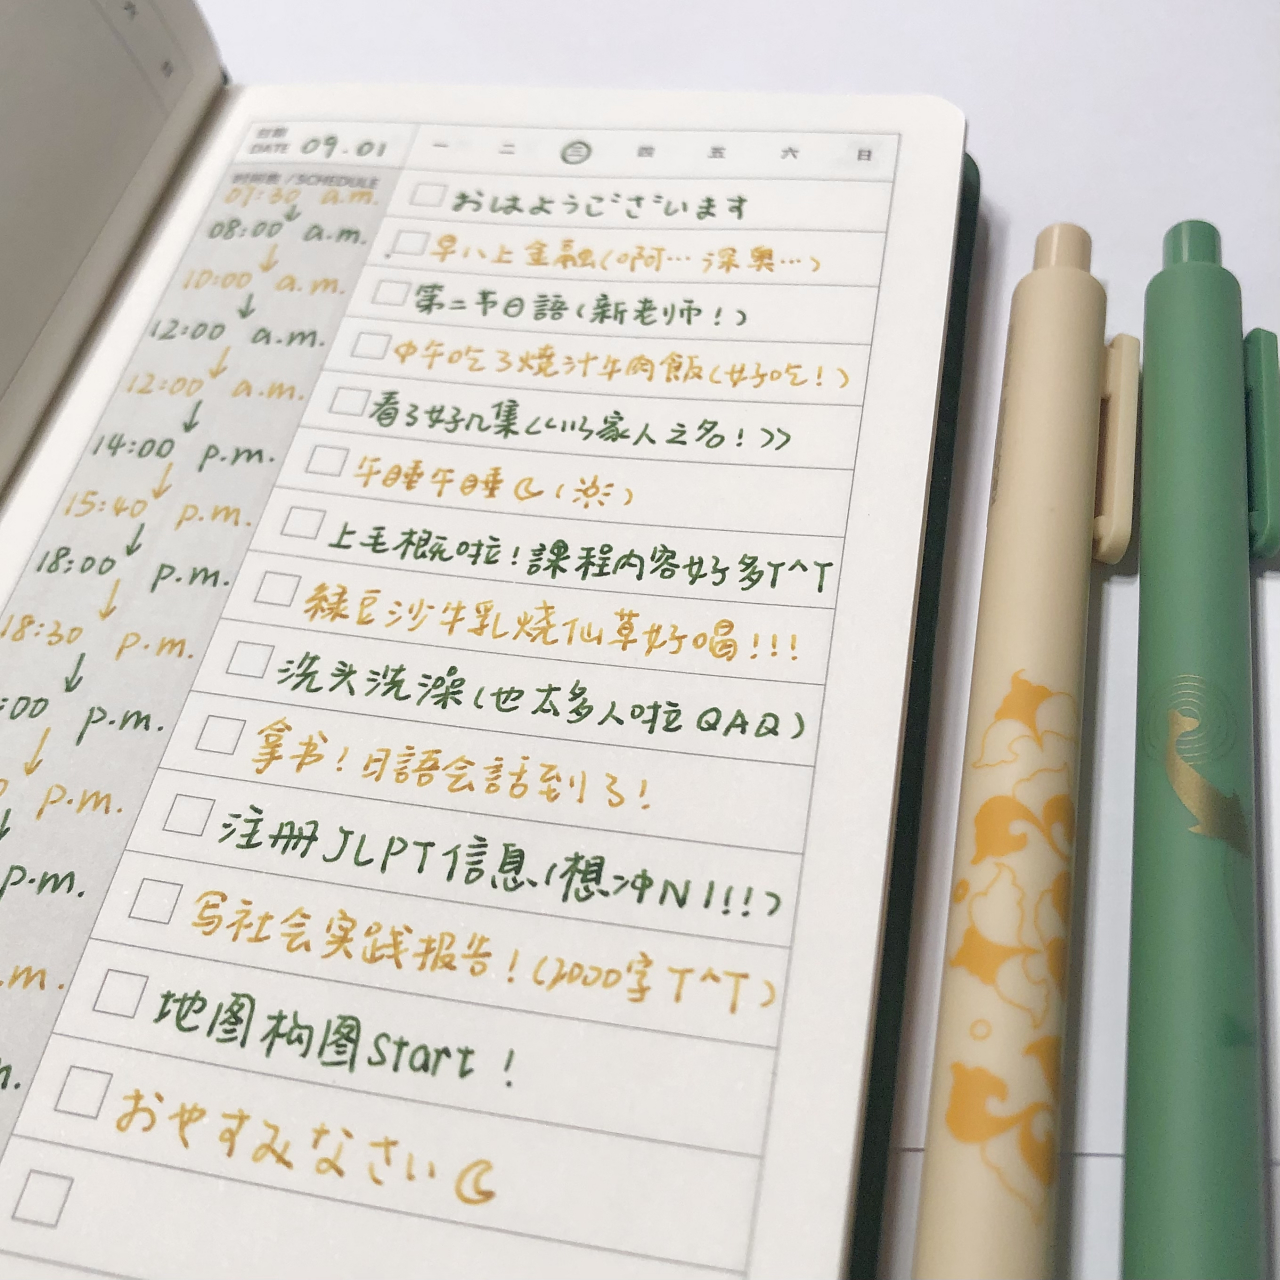 日期
DATE 09.01 一 二 三 四 五 六 日
時間軸 /SCHEDULE
07:30 a.m. おはようございます
08:00 a.m. 早八上金融(啊…深奥…)
10:00 a.m. 第二节日語(新老师!)
12:00 a.m. 中午吃了燒汁牛肉飯(好吃!)
12:00 a.m. 看了好几集《以家人之名!》
14:00 p.m. 午睡午睡(
15:40 p.m. 上毛概啦!課程内容好多T^T
18:00 p.m. 綠豆沙牛乳烧仙草好喝!!!
18:30 p.m. 洗头洗澡(也太多人啦QAQ)
:00 p.m. 拿书!日語会話到了!
p.m. 注册JLPT信息(想冲N1!!)
p.m. 写社会実践报告!(2000字T^T)
.m. 地图构图start!
m. おやすみなさい